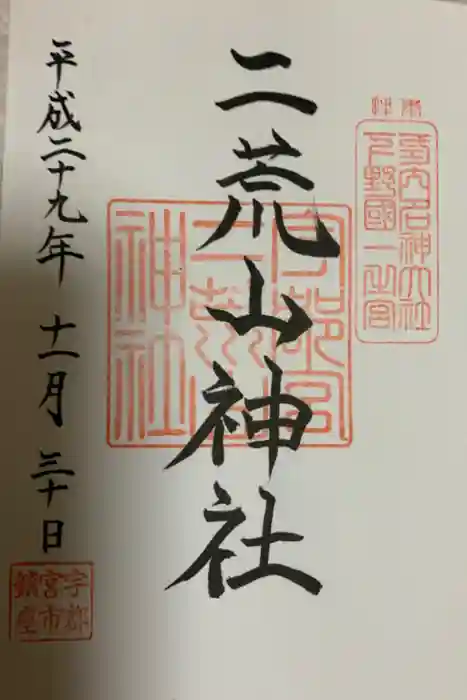 式内名神大社
下野國一之宮
二荒山神社
宇都宮
二荒山
神社
平成二十九年 十一月 三十日
宇都
宮市
鎮座